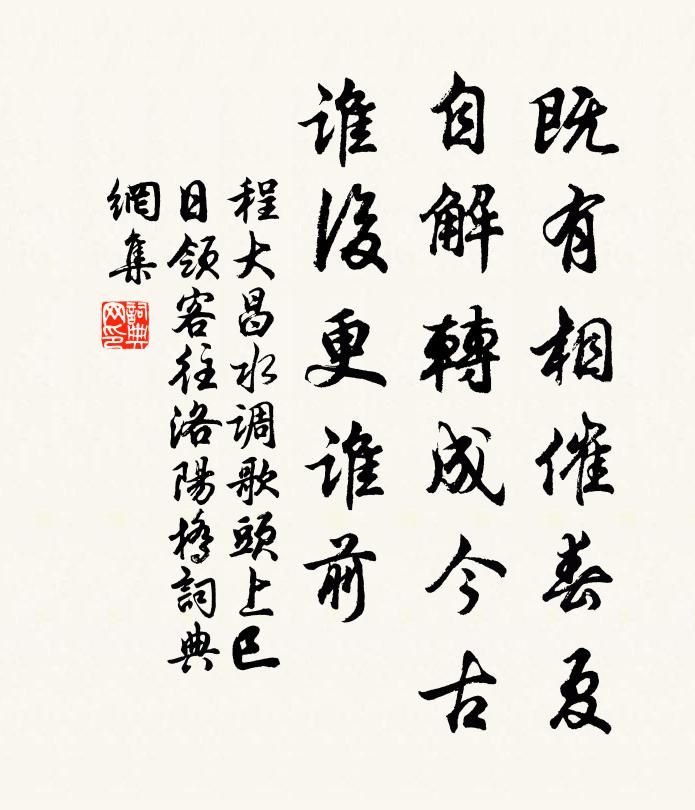 既有相催春夏
自解轉成今古
誰後更誰前
程大昌水调歌頭上巳
日領客往洛陽橋詞典
網集
詞典网印